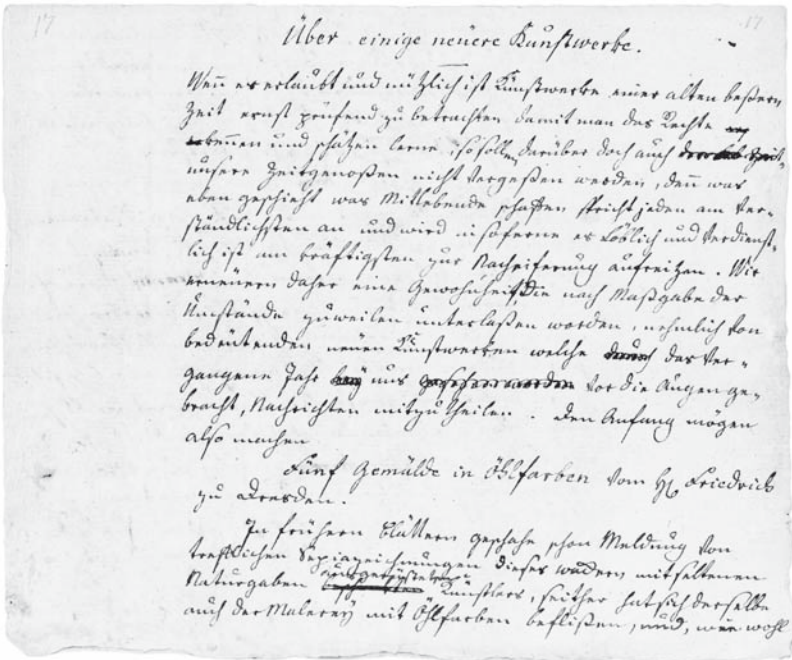 17
17
Über einige neuere Kunstwerke.
Wenn es erlaubt und nützlich ist Kunstwerke einer alten beßern
Zeit ernst prüfend zu betrachten damit man das Rechte
erkennen und schätzen lerne; so sollen darüber doch auch
unsere Zeitgenoßen nicht vergeßen werden, denn was
eben geschieht was Mitlebende schaffen spricht jeden am ver-
ständlichsten an und wird insoferne es löblich und verdienst-
lich ist am kräftigsten zur Nacheiferung aufreitzen. Wir
erneuern daher eine Gewohnheit, die nach Maßgabe der
Umstände zuweilen unterlaßen worden, nehmlich von
bedeutenden neuen Kunstwerken welche durch das Ver-
gangene Jahr bey uns gesehen worden vor die Augen ge-
bracht, Nachrichten mitzutheilen. Den Anfang mögen
also machen
Fünf Gemälde in Öhlfarben vom Hr Friedrich
zu Dresden.
In frühern Blättern geschahe schon Meldung von
trefflichen Sepiazeichnungen dieses wackern mit seltenen
ausgerüsteten
Naturgaben Künstlers, seither hat sich derselbe
auch der Malerey mit Öhlfarben beflißen, und, wie wohl